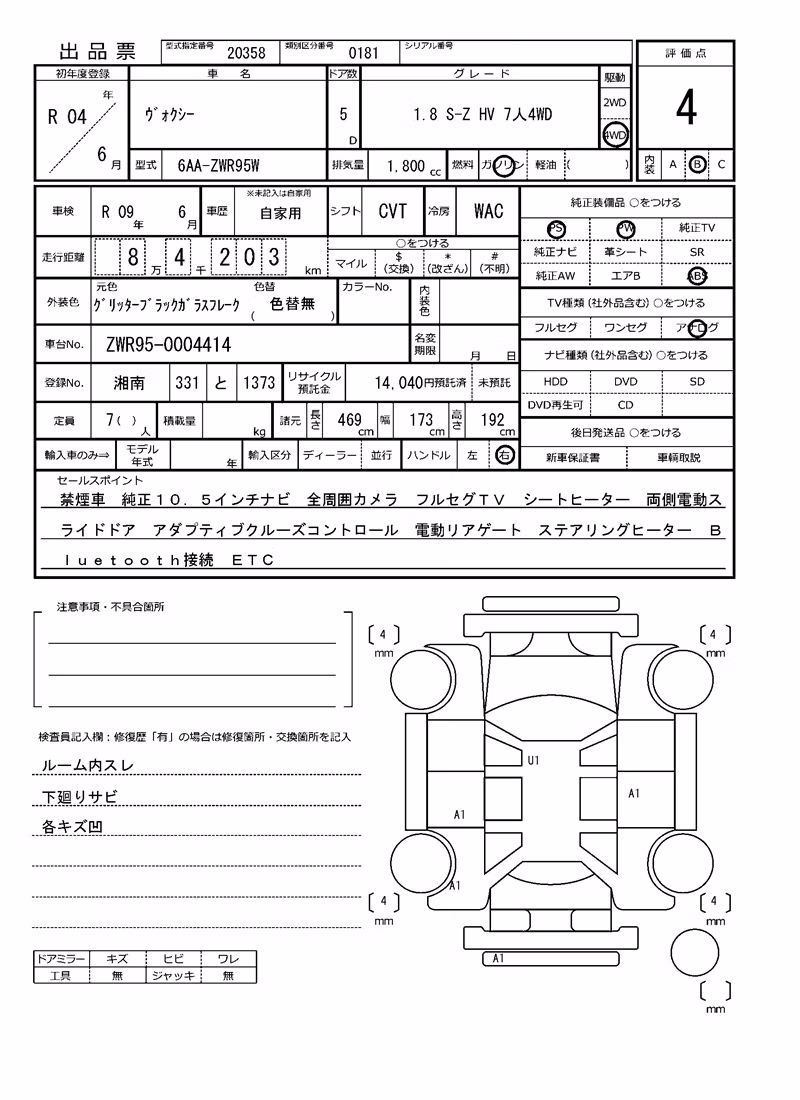 出品票 型式指定番号 20358 類別区分番号 0181 シリアル番号
評価点
4
内装 A B C
初年度登録 車名 ドア数 グレード 駆動
R 04 年 6 月 ヴォクシー 5 D 1.8 S-Z HV 7人4WD 2WD 4WD
型式 6AA-ZWR95W 排気量 1,800 cc 燃料 ガソリン 軽油 ( )
車検 R 09 年 6 月 車歴 ※未記入は自家用 自家用 シフト CVT 冷房 WAC
走行距離 8 万 4 千 2 0 3 km
○をつける
マイル $ (交換) * (改ざん) # (不明)
外装色 元色 グリッターブラックガラスフレーク 色替 ( 色替無 ) カラーNo. 内装色
車台No. ZWR95-0004414 名変期限 月 日
登録No. 湘南 331 と 1373 リサイクル預託金 14,040円預託済 未預託
定員 7( ) 人 積載量 kg 諸元 長さ 469 cm 幅 173 cm 高さ 192 cm
輸入車のみ⇒ モデル年式 年 輸入区分 ディーラー 並行 ハンドル 左 右
純正装備品 ○をつける
PS PW 純正TV
純正ナビ 革シート SR
純正AW エアB ABS
TV種類(社外品含む)○をつける
フルセグ ワンセグ アナログ
ナビ種類(社外品含む)○をつける
HDD DVD SD
DVD再生可 CD
後日発送品 ○をつける
新車保証書 車輌取説
セールスポイント
禁煙車 純正10.5インチナビ 全周囲カメラ フルセグTV シートヒーター 両側電動ス
ライドドア アダプティブクルーズコントロール 電動リアゲート ステアリングヒーター B
luetooth接続 ETC
注意事項・不具合箇所
検査員記入欄:修復歴「有」の場合は修復箇所・交換箇所を記入
ルーム内スレ
下廻りサビ
各キズ凹
ドアミラー キズ ヒビ ワレ
工具 無 ジャッキ 無
4 mm
4 mm
U1
A1
A1
A1
4 mm
4 mm
A1
mm